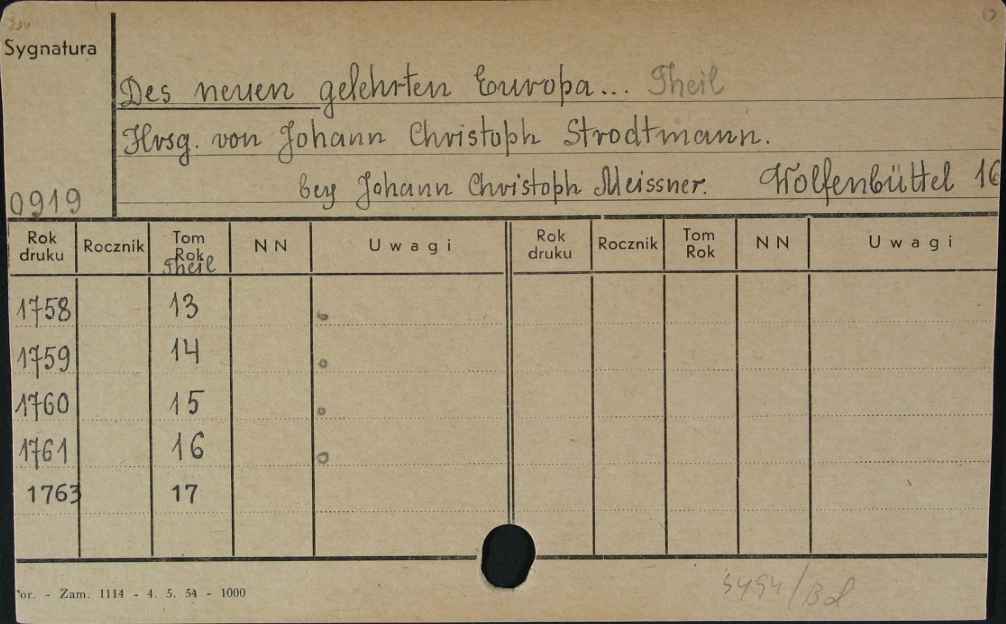 Sygnatura
Des neuen gelehrten Europa... Theil
Hrsg. von Johann Christoph Strodtmann.
bey Johann Christoph Meissner. Wolfenbüttel 16
0919
Rok druku Rocznik Tom Rok Theil N N Uwagi Rok druku Rocznik Tom Rok N N Uwagi
1758 13
1759 14
1760 15
1761 16
1763 17
or. - Zam. 1114 - 4. 5. 54 - 1000